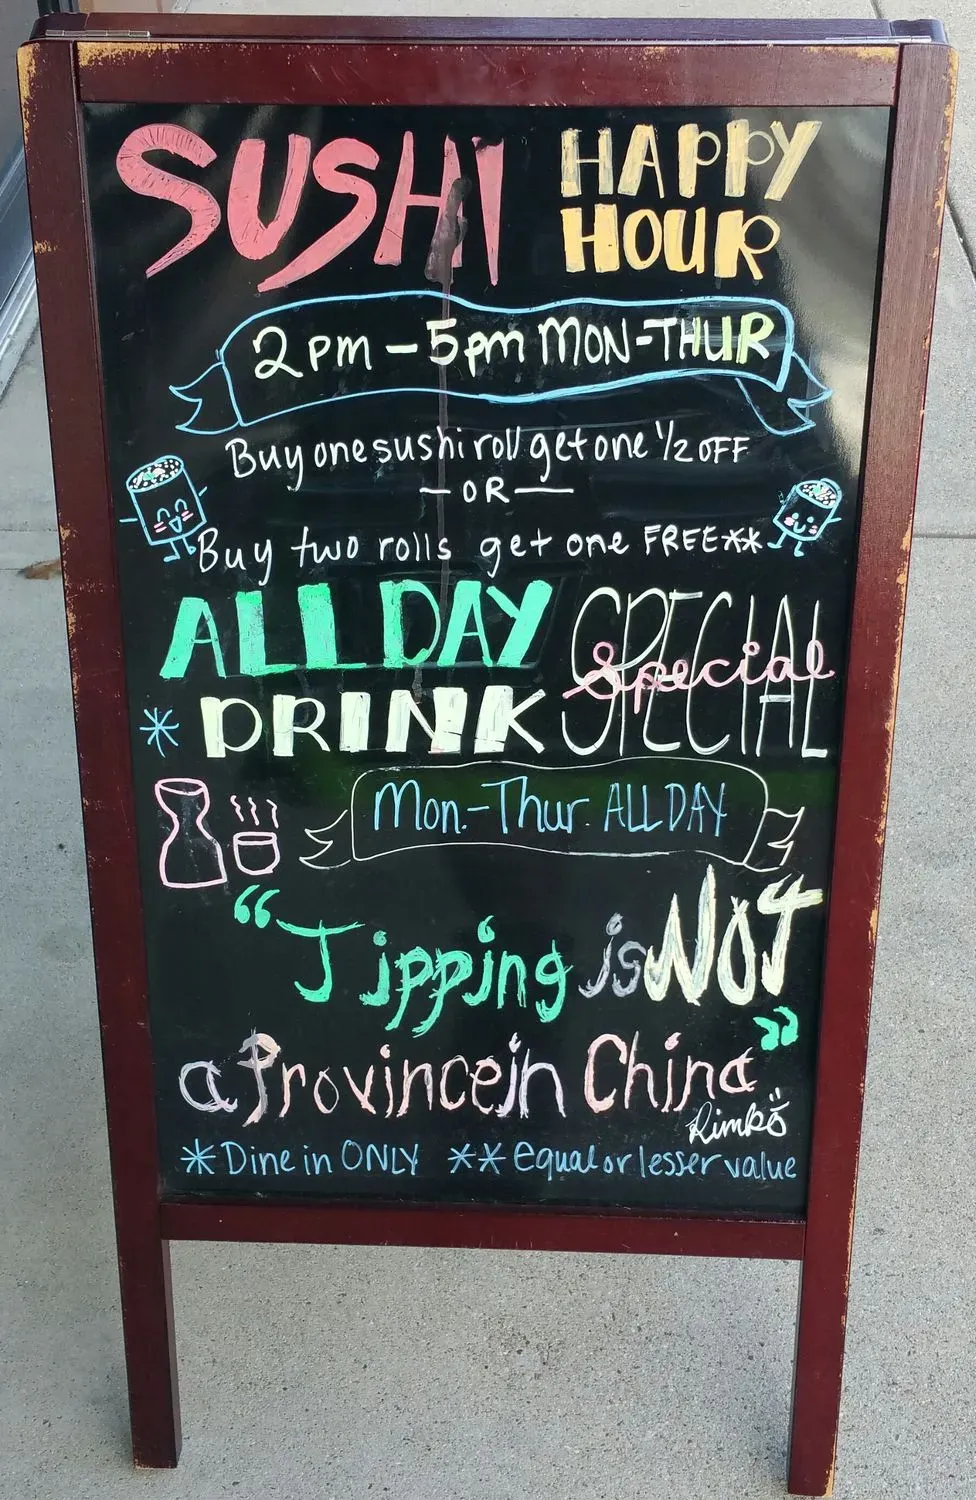 SUSHI HAPPY
HOUR
2pm - 5pm MON-THUR
Buy one sushi roll get one 1/2 OFF
- OR -
Buy two rolls get one FREE**
ALL DAY SPECIAL
Special
* DRINK
Mon.-Thur. ALL DAY
"Tipping is NOT
a Province in China"
*Dine in ONLY **equal or lesser value